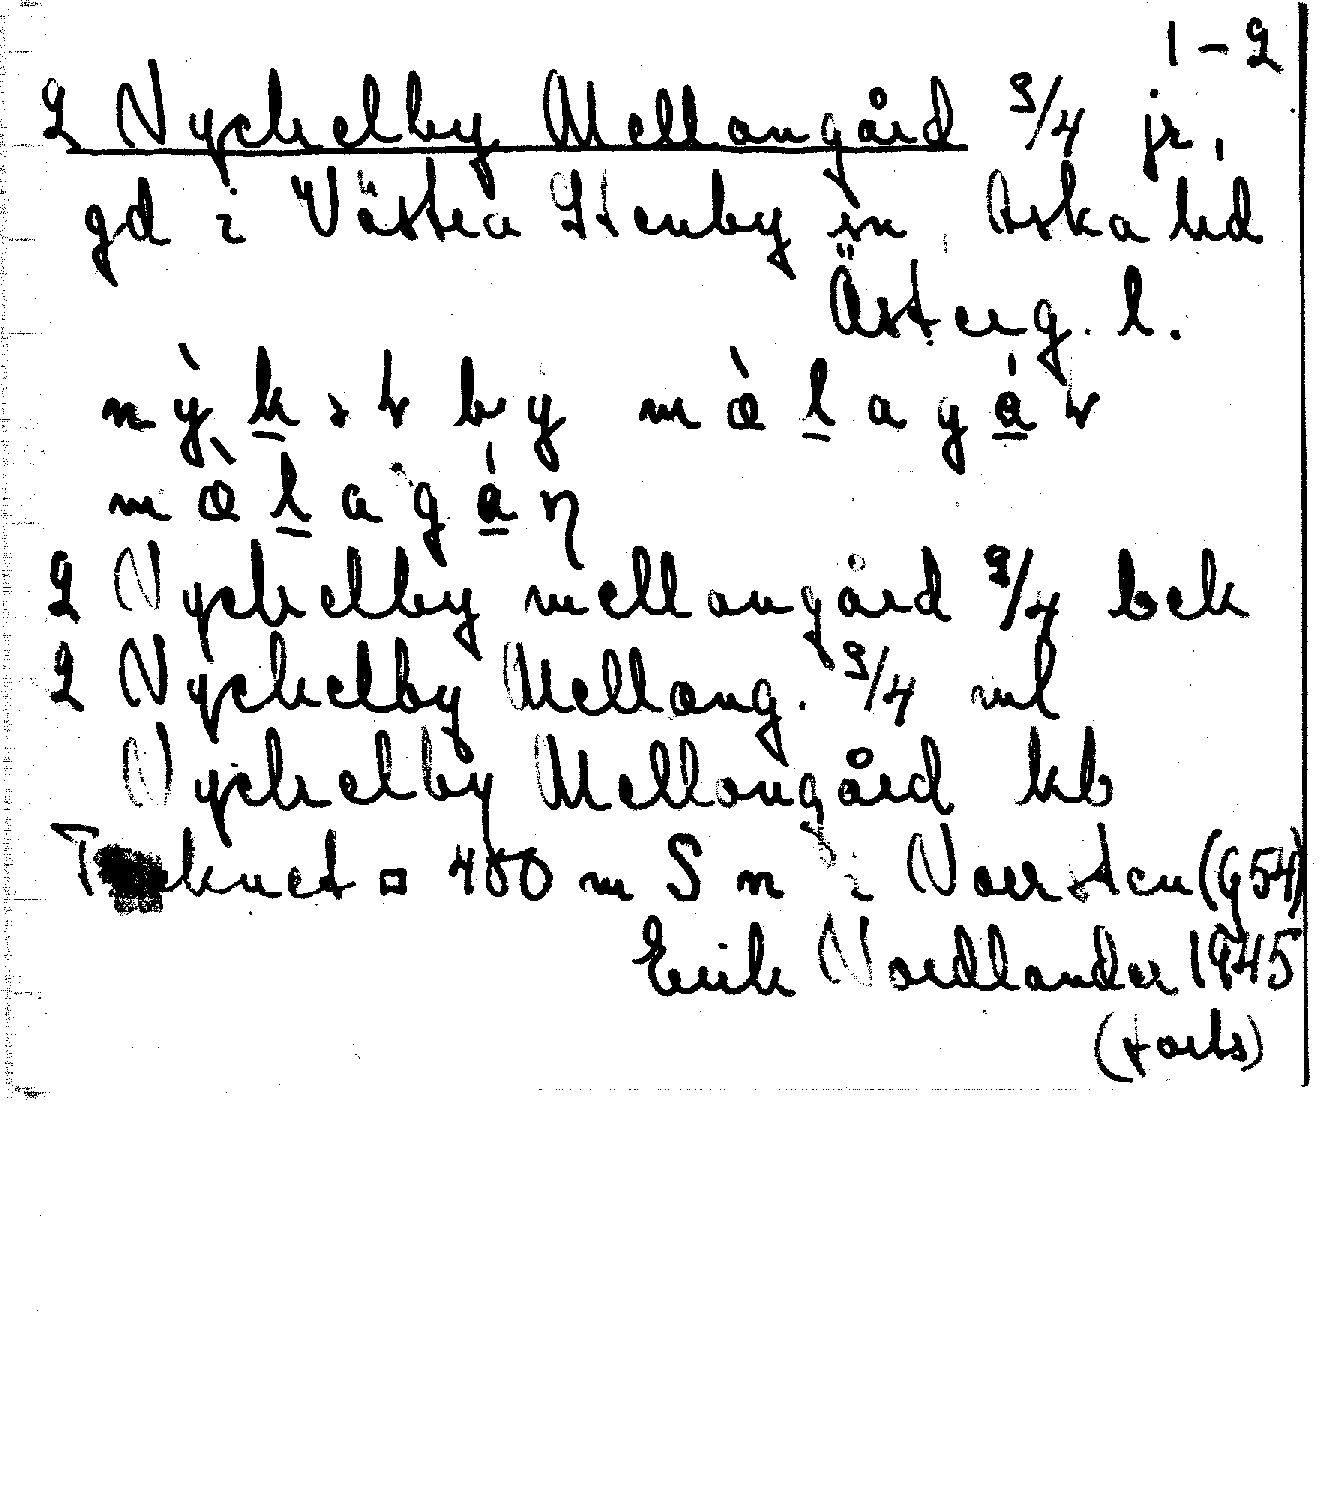 1-2
2 Nyckelby Mellangård 3/4 jr,
gd i Västra Stenby sn, Aska hd
Österg. l.
2 Nyckelby mellangård 3/4 bek
2 Nyckelby Mellang. 3/4 ml
Nyckelby Mellangård kb
Tecknet □ 400 m S n i Norrsten (954)
Erik Nordlander 1945
(forts)